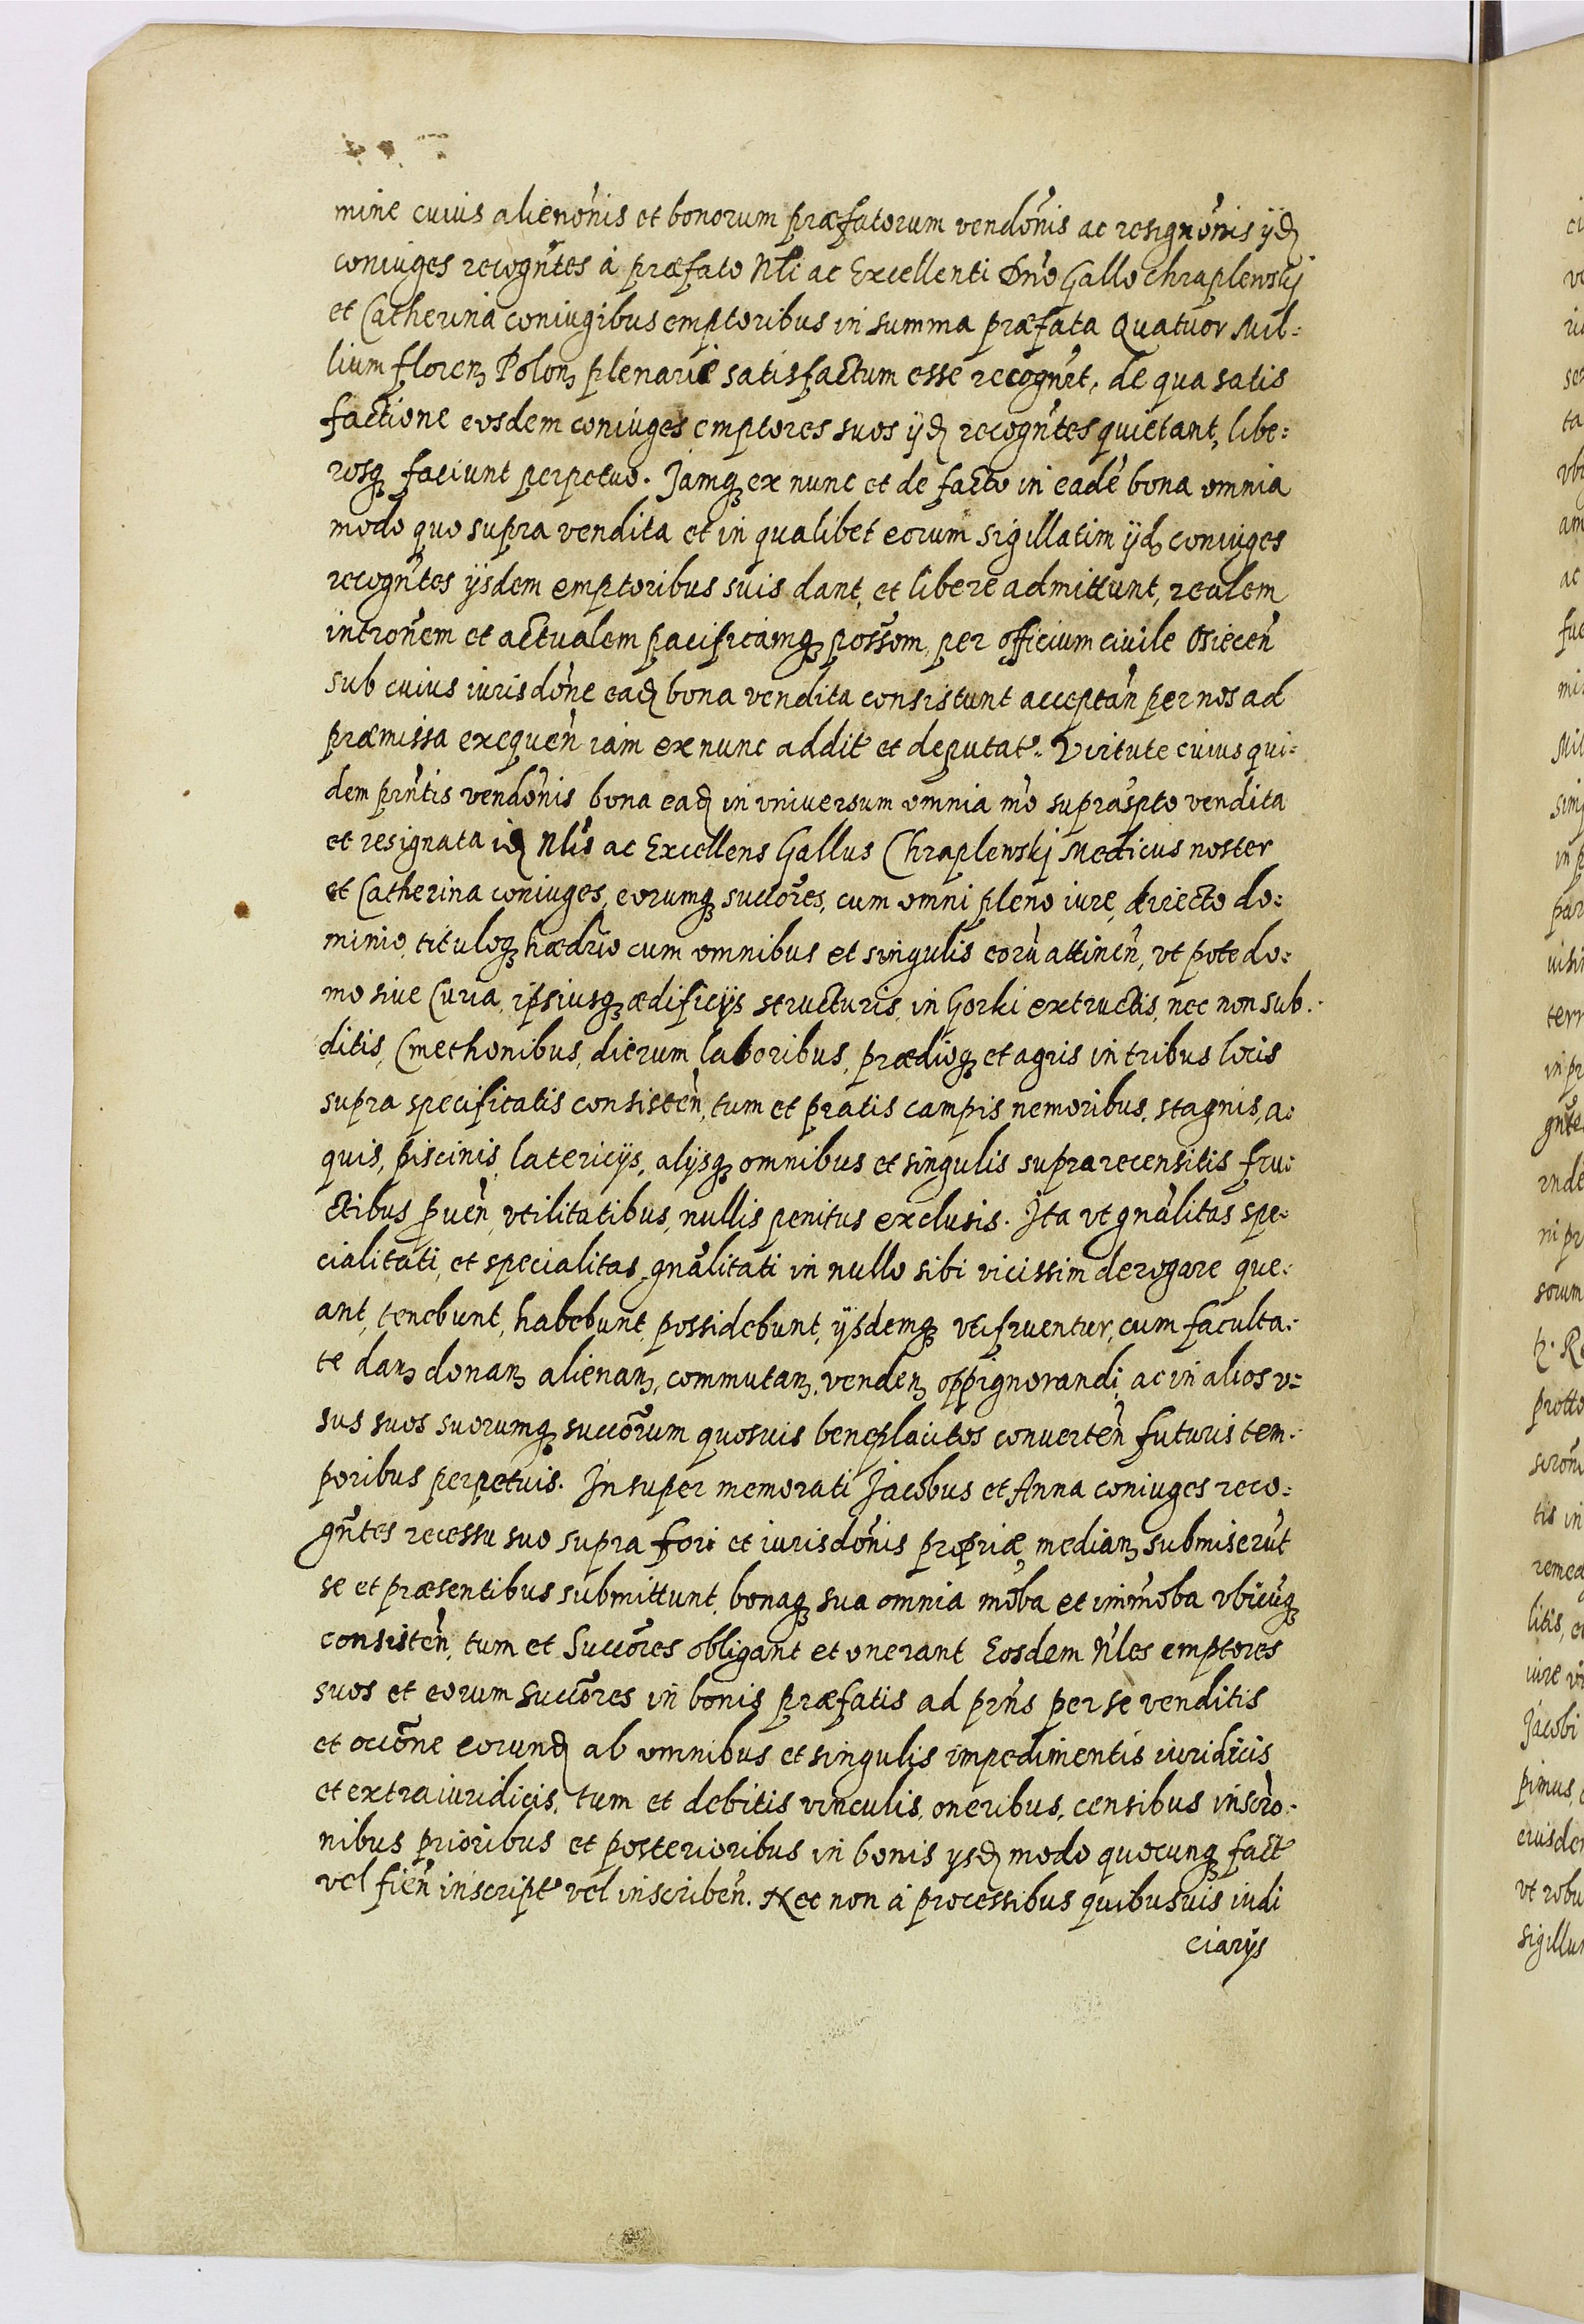 mine cuius alienõnis et bonorum præfatorum vendõnis ac resignõnis ijdꝫ
coniuges recogñtes à præfato Nli ac Excellenti Dño Gallo Chraplewskj
et Catherina coniugibus emptoribus in summa præfata Quatuor Mil:
lium florenꝫ Polonꝫ plenariè satisfactum esse recogñrt, de qua satis
factione eosdem coniuges emptores suos ijdꝫ recogñtes quietant, libe:
rosqꝫ faciunt perpetuo. Jamqꝫ ex nunc et de facto in eadẽ bona omnia
modo quo supra vendita et in qualibet eorum sigillatim ijdꝫ coniuges
recogñtes ijsdem emptoribus suis dant, et libere admittunt, realem
intronẽm et actualem pacificamqꝫ possõm, per officium civile Osieceñ
sub cuius iurisdõne eadꝫ bona vendita consistunt acceptañ per nos ad
præmissa exequeñ iam ex nunc addit et deputat. Virtute cuius qui:
dem prñtis vendõnis bona eadꝫ in vniversum omnia mõ suprasptõ vendita
et resignata idꝫ Nlis ac Excellens Gallus Chraplewskj Medicus noster
et Catherina coniuges, eorumqꝫ succõres, cum omni pleno iure, directo do:
minio, tituloqꝫ hædrio cum omnibus et singulis eorũ attineñ, vt pote do:
mo siue Curia, ipsiusqꝫ ædificijs structuris, in Gorki extructis, nec non sub:
ditis, Cmethonibus, dierum laboribus, prædioqꝫ et agris in tribus locis
supra specificatis consisteñ, tum et pratis campis nemoribus, stagnis, a:
quis, piscinis, latericijs, alijsqꝫ omnibus et singulis supra recensitis fru:
ctibus ꝓueñ, vtilitatibus, nullis penitus exclusis. Ita vt gñalitas spe:
cialitati, et specialitas gñalitati in nullo sibi vicissim derogare que:
ant, tenebunt, habebunt, possidebunt, ijsdemqꝫ vtifruentur, cum faculta:
te danꝫ donanꝫ alienanꝫ, commutanꝫ, vendenꝫ oppignorandi, ac in alios v:
sus suos suorumqꝫ succõrum quosuis beneplacitos conuerteñ futuris tem:
poribus perpetuis. Insuper memorati Jacobus et Anna coniuges reco:
gñtes recessu suo supra fori et iurisdõnis propriæ, medianꝫ submiserũt
se et præsentibus submittunt, bonaqꝫ sua omnia mõba et immõba vbicũqꝫ
consisteñ, tum et Succõres obligant et onerant Eosdem Nles emptores
suos et eorum succõres in bonis præfatis ad prñs per se venditis
et occõne eorundꝫ ab omnibus et singulis impedimentis iuridicis
et extraiuridicis, tum et debitis vinculis, oneribus, censibus inscrõ:
nibus prioribus et posterioribus in bonis ijsdꝫ modo quocunqꝫ fact
vel fieñ inscript vel inscribeñ. Nec non à processibus quibusuis iudi
ciarijs